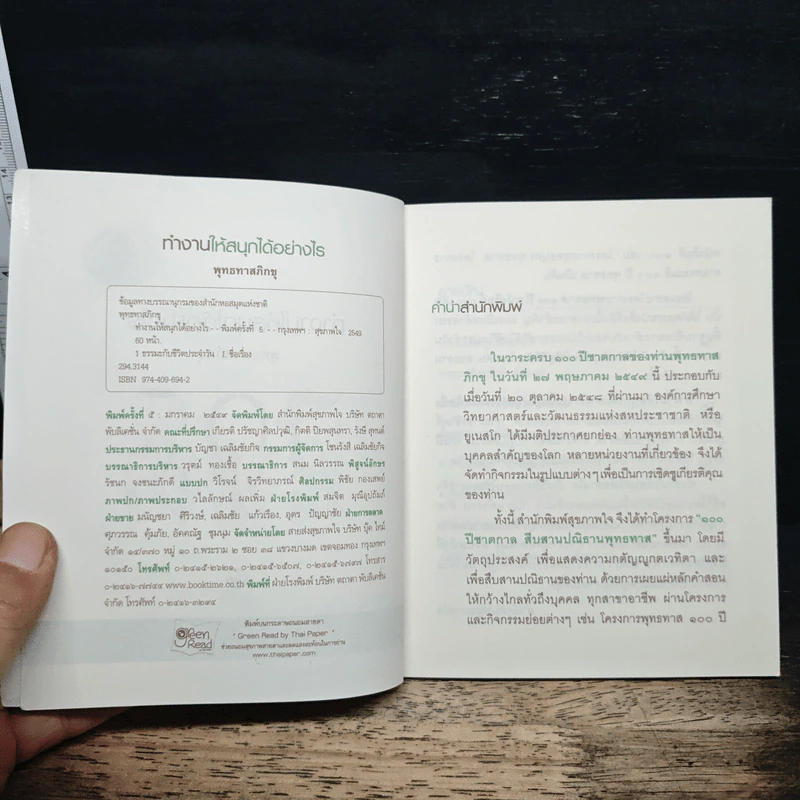 ทำงานให้สนุกได้อย่างไร
พุทธทาสภิกขุ
ข้อมูลทางบรรณานุกรมของสำนักหอสมุดแห่งชาติ
พุทธทาสภิกขุ
ทำงานให้สนุกได้อย่างไร.- - พิมพ์ครั้งที่ 5 - - กรุงเทพฯ : สุขภาพใจ 2549
60 หน้า.
1 ธรรมะกับชีวิตประจำวัน I. ชื่อเรื่อง
294.3144
ISBN 974-409-694-2
พิมพ์ครั้งที่ ๕ : มกราคม ๒๕๔๙ จัดพิมพ์โดย สำนักพิมพ์สุขภาพใจ บริษัท ตถาตา
พับลิเคชั่น จำกัด คณะที่ปรึกษา เกียรติ ปรัชญาศิลปวุฒิ, กิตติ ปิยพสุนทรา, รังษี สุทนต์
ประธานกรรมการบริหาร บัญชา เฉลิมชัยกิจ กรรมการผู้จัดการ โชนรังสี เฉลิมชัยกิจ
บรรณาธิการบริหาร วรุตม์ ทองเชื้อ บรรณาธิการ สนม นิลวรรณ พิสูจน์อักษร
รัชนก จงชนะภักดี แบบปก วิโรจน์ จิรวิทยาภรณ์ ศิลปกรรม พิชัย กองเสพย์
ภาพปก/ภาพประกอบ วไลลักษณ์ ผลเพิ่ม ฝ่ายโรงพิมพ์ สมจิต มุณีอุปถัมภ์
ฝ่ายขาย มนัญชยา ศิริวงษ์, เฉลิมชัย แก้วเรือง, อุดร ปัญญาชัย ฝ่ายการตลาด
ศุภวรรณ คุ้มภัย, อัคคณัฐ ชุมนุม จัดจำหน่ายโดย สายส่งสุขภาพใจ บริษัท บุ๊ค ไทม์
จำกัด ๑๔/๓๗๐ หมู่ ๑๐ ถ.พระราม ๒ ซอย ๓๘ แขวงบางมด เขตจอมทอง กรุงเทพฯ
๑๐๑๕๐ โทรศัพท์ ๐-๒๔๑๕-๒๖๒๑, ๐-๒๔๑๕-๖๕๐๗, ๐-๒๔๑๕-๖๗๙๗ โทรสาร
๐-๒๔๑๖-๗๗๔๔ www.booktime.co.th พิมพ์ที่ ฝ่ายโรงพิมพ์ บริษัท ตถาตา พับลิเคชั่น
จำกัด โทรศัพท์ ๐-๒๔๑๖-๓๒๙๔
green
Read
พิมพ์บนกระดาษถนอมสายตา
" Green Read by Thai Paper "
ช่วยถนอมสุขภาพสายตาและลดแสงสะท้อนในการอ่าน
www.thaipaper.com
คำนำสำนักพิมพ์
ในวาระครบ ๑๐๐ ปีชาตกาลของท่านพุทธทาส
ภิกขุ ในวันที่ ๒๗ พฤษภาคม ๒๕๔๙ นี้ ประกอบกับ
เมื่อวันที่ ๒๐ ตุลาคม ๒๕๔๘ ที่ผ่านมา องค์การศึกษา
วิทยาศาสตร์และวัฒนธรรมแห่งสหประชาชาติ หรือ
ยูเนสโก ได้มีมติประกาศยกย่อง ท่านพุทธทาสให้เป็น
บุคคลสำคัญของโลก หลายหน่วยงานที่เกี่ยวข้อง จึงได้
จัดทำกิจกรรมในรูปแบบต่างๆ เพื่อเป็นการเชิดชูเกียรติคุณ
ของท่าน
ทั้งนี้ สำนักพิมพ์สุขภาพใจ จึงได้ทำโครงการ "๑๐๐
ปีชาตกาล สืบสานปณิธานพุทธทาส" ขึ้นมา โดยมี
วัตถุประสงค์ เพื่อแสดงความกตัญญูกตเวทิตา และ
เพื่อสืบสานปณิธานของท่าน ด้วยการเผยแผ่หลักคำสอน
ให้กว้างไกลทั่วถึงบุคคล ทุกสาขาอาชีพ ผ่านโครงการ
และกิจกรรมย่อยต่างๆ เช่น โครงการพุทธทาส ๑๐๐ ปี